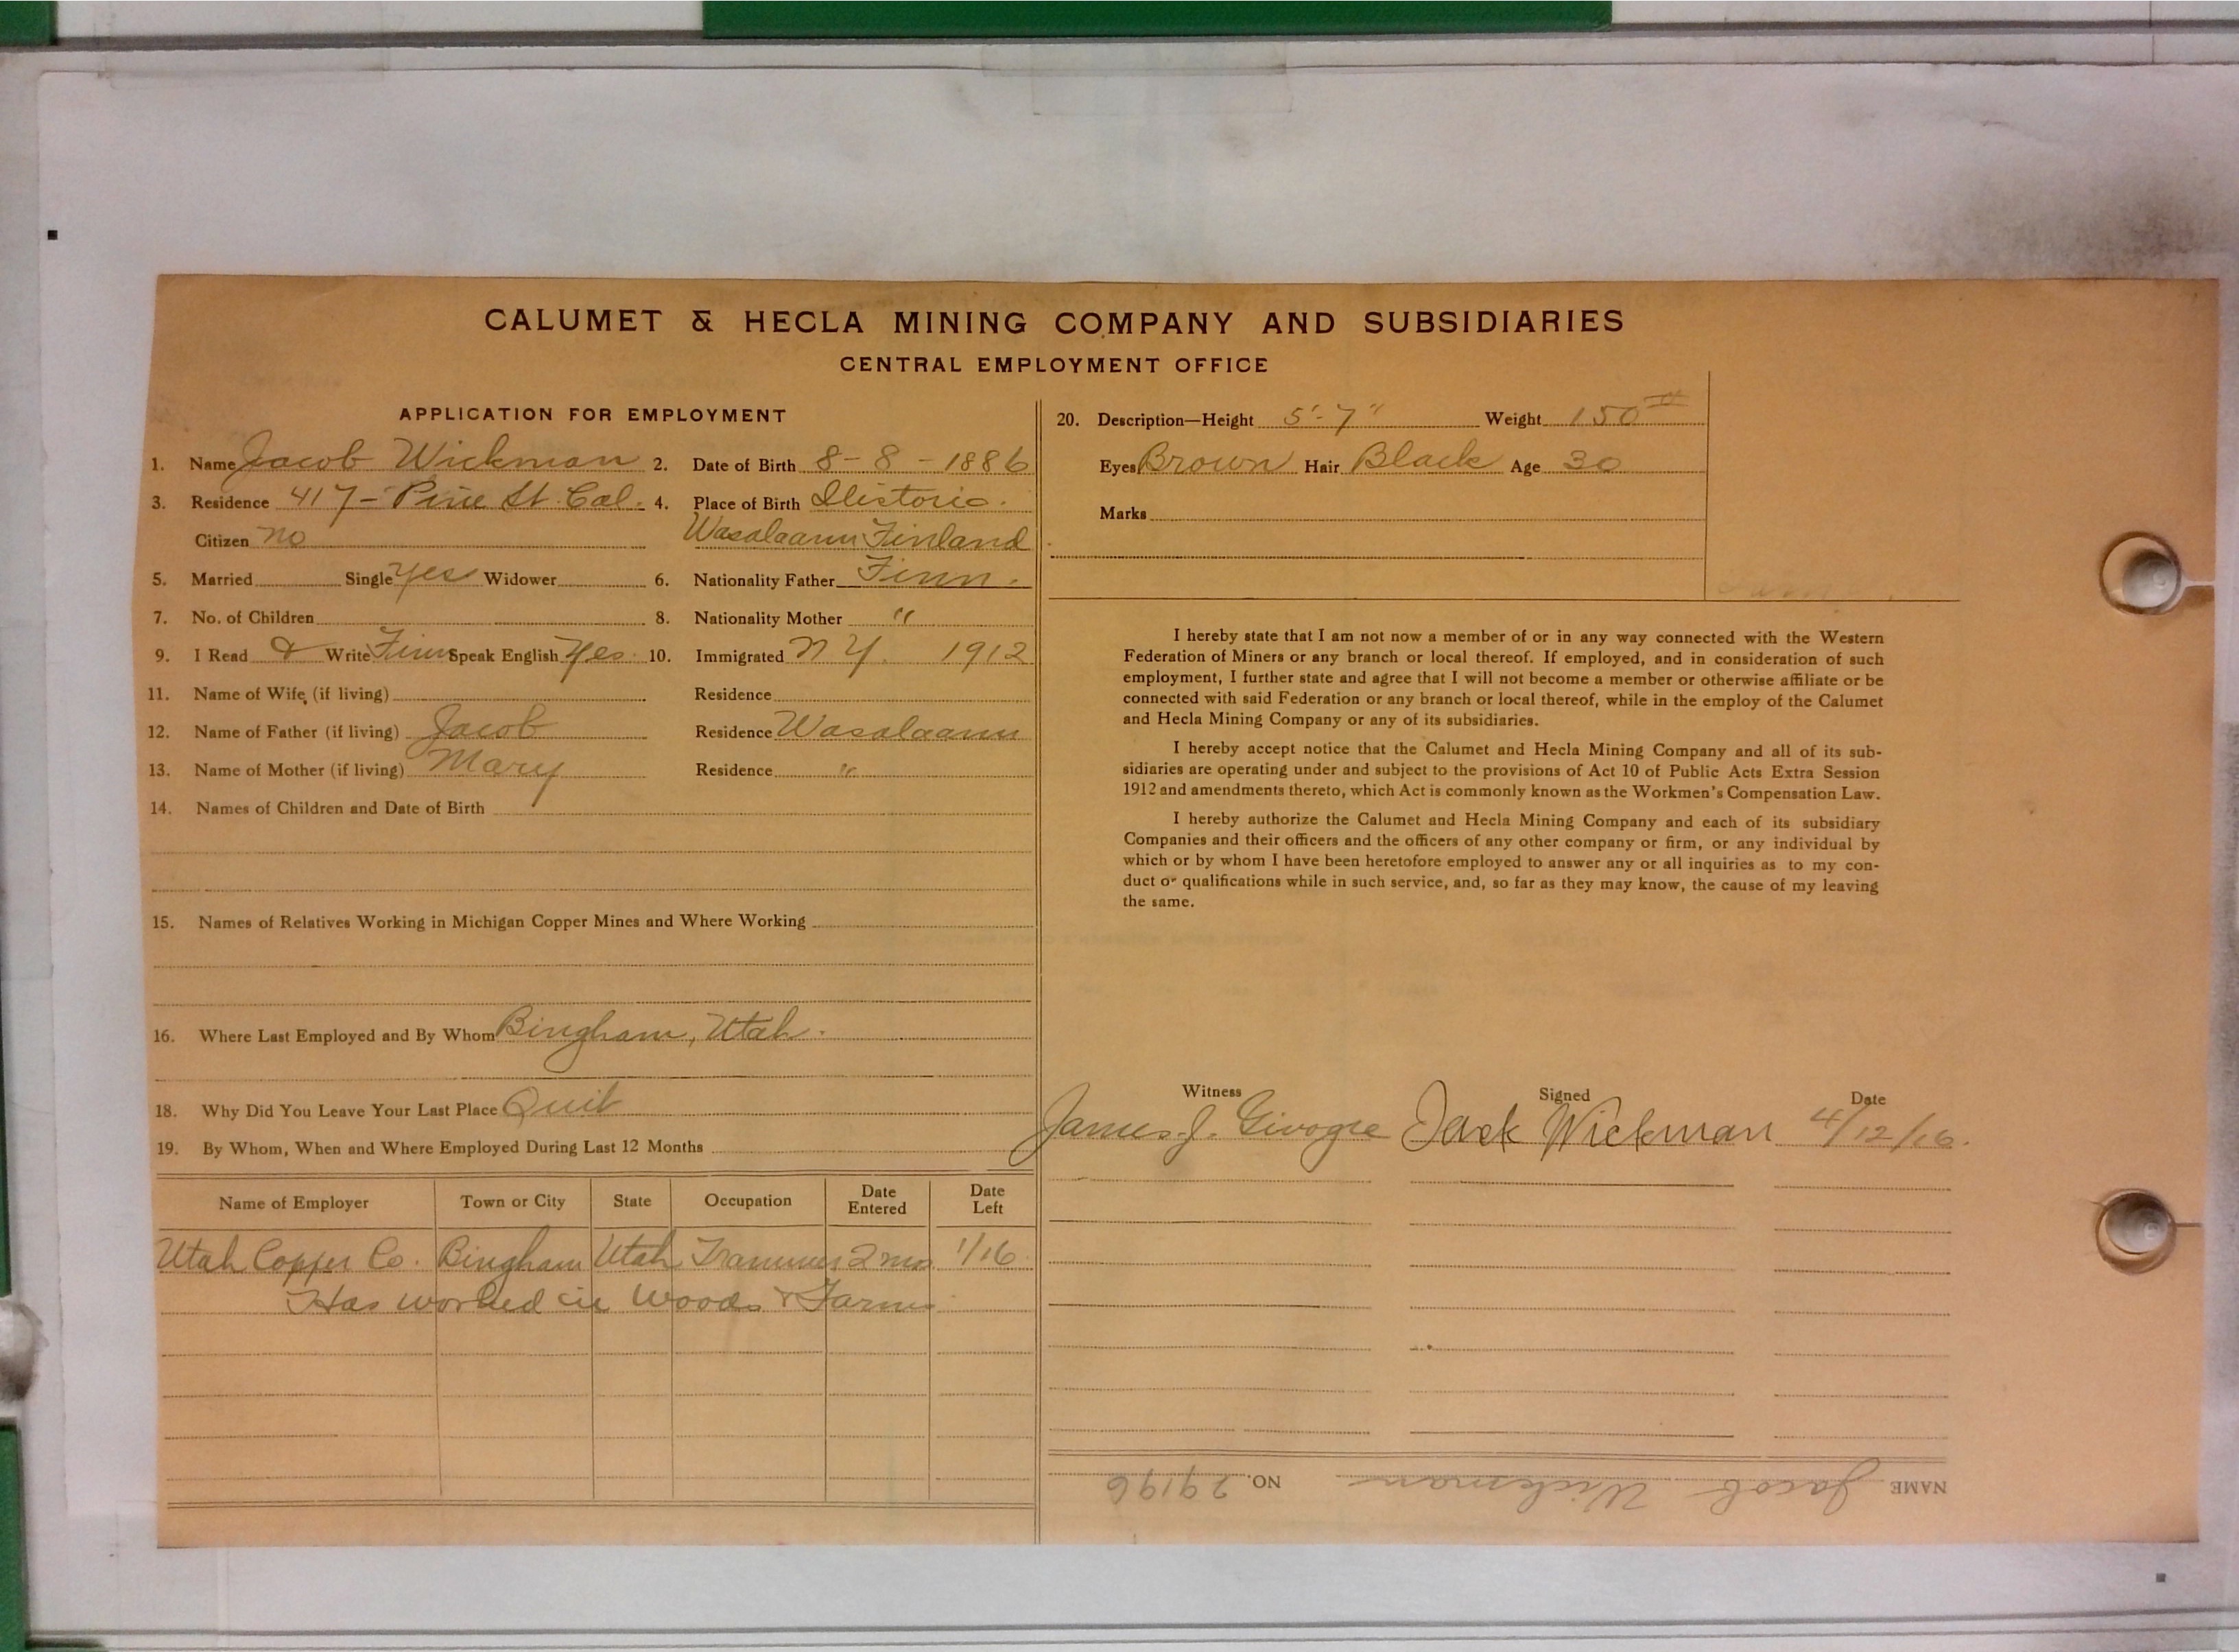 CALUMET & HECLA MINING COMPANY AND SUBSIDIARIES
CENTRAL EMPLOYMENT OFFICE
APPLICATION FOR EMPLOYMENT
1. Name Jacob Wickman 2. Date of Birth 8-8-1886
3. Residence 417-Pine St. Cal. 4. Place of Birth
Citizen no Wasalaann Finland
5. Married Single Yes Widower 6. Nationality Father Finn.
7. No. of Children 8. Nationality Mother "
9. I Read & Write Finn Speak English Yes. 10. Immigrated N Y. 1912
11. Name of Wife (if living) Residence
12. Name of Father (if living) Jacob Residence Wasalaann
13. Name of Mother (if living) Mary Residence "
14. Names of Children and Date of Birth
15. Names of Relatives Working in Michigan Copper Mines and Where Working
16. Where Last Employed and By Whom Bingham, Utah.
18. Why Did You Leave Your Last Place Quit
19. By Whom, When and Where Employed During Last 12 Months
Name of Employer Town or City State Occupation Date Entered Date Left
Utah Copper Co. Bingham Utah Trammer 2 mos 1/16
Has worked in Woods & Farms
20. Description—Height 5'-7" Weight 150#
Eyes Brown Hair Black Age 30
Marks
I hereby state that I am not now a member of or in any way connected with the Western
Federation of Miners or any branch or local thereof. If employed, and in consideration of such
employment, I further state and agree that I will not become a member or otherwise affiliate or be
connected with said Federation or any branch or local thereof, while in the employ of the Calumet
and Hecla Mining Company or any of its subsidiaries.
I hereby accept notice that the Calumet and Hecla Mining Company and all of its sub-
sidiaries are operating under and subject to the provisions of Act 10 of Public Acts Extra Session
1912 and amendments thereto, which Act is commonly known as the Workmen's Compensation Law.
I hereby authorize the Calumet and Hecla Mining Company and each of its subsidiary
Companies and their officers and the officers of any other company or firm, or any individual by
which or by whom I have been heretofore employed to answer any or all inquiries as to my con-
duct or qualifications while in such service, and, so far as they may know, the cause of my leaving
the same.
Witness Signed Date
James J. Jack Wickman 4/12/16.
NAME Jacob Wickman NO. 29196